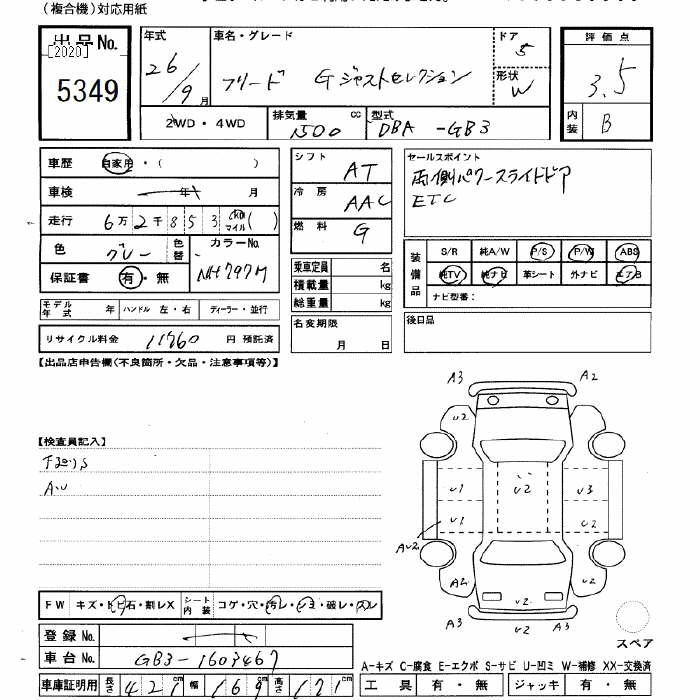 (複合機)対応用紙
出品No.
[2020]
5349
年式
26/9月
車名・グレード
フリード Gジャストセレクション
ドア
5
形状
W
評価点
3.5
内装
B
2WD・4WD
排気量
1500 cc
型式
DBA -GB3
車歴 自家用・( )
車検 年 月
走行 6万2千853 km マイル( )
色 グレー 色替
カラーNo.
NH797M
保証書 有・無
シフト AT
冷房 AAC
燃料 G
乗車定員 名
積載量 kg
総重量 kg
名変期限
月 日
セールスポイント
両側パワースライドドア
ETC
装備品
S/R 純A/W P/S P/W ABS
純TV 純ナビ 革シート 外ナビ エアB
ナビ型番:
後日品
モデル年式 年 ハンドル 左・右 ディーラー・並行
リサイクル料金 11760 円 預託済
【出品店申告欄(不良箇所・欠品・注意事項等)】
【検査員記入】
A.U
A3 A2
U2
U1 U2 U3
U1 U2
AU2
A2 U2 U2
A3 U2 A3
スペア
FW キズ・トビ石・割レX シート内装 コゲ・穴・汚レ・シミ・破レ・スレ
登録No.
車台No. GB3-1603467
車庫証明用 長さ 421cm 幅 169cm 高さ 171cm
A-キズ C-腐食 E-エクボ S-サビ U-凹ミ W-補修 XX-交換済
工具 有・無 ジャッキ 有・無